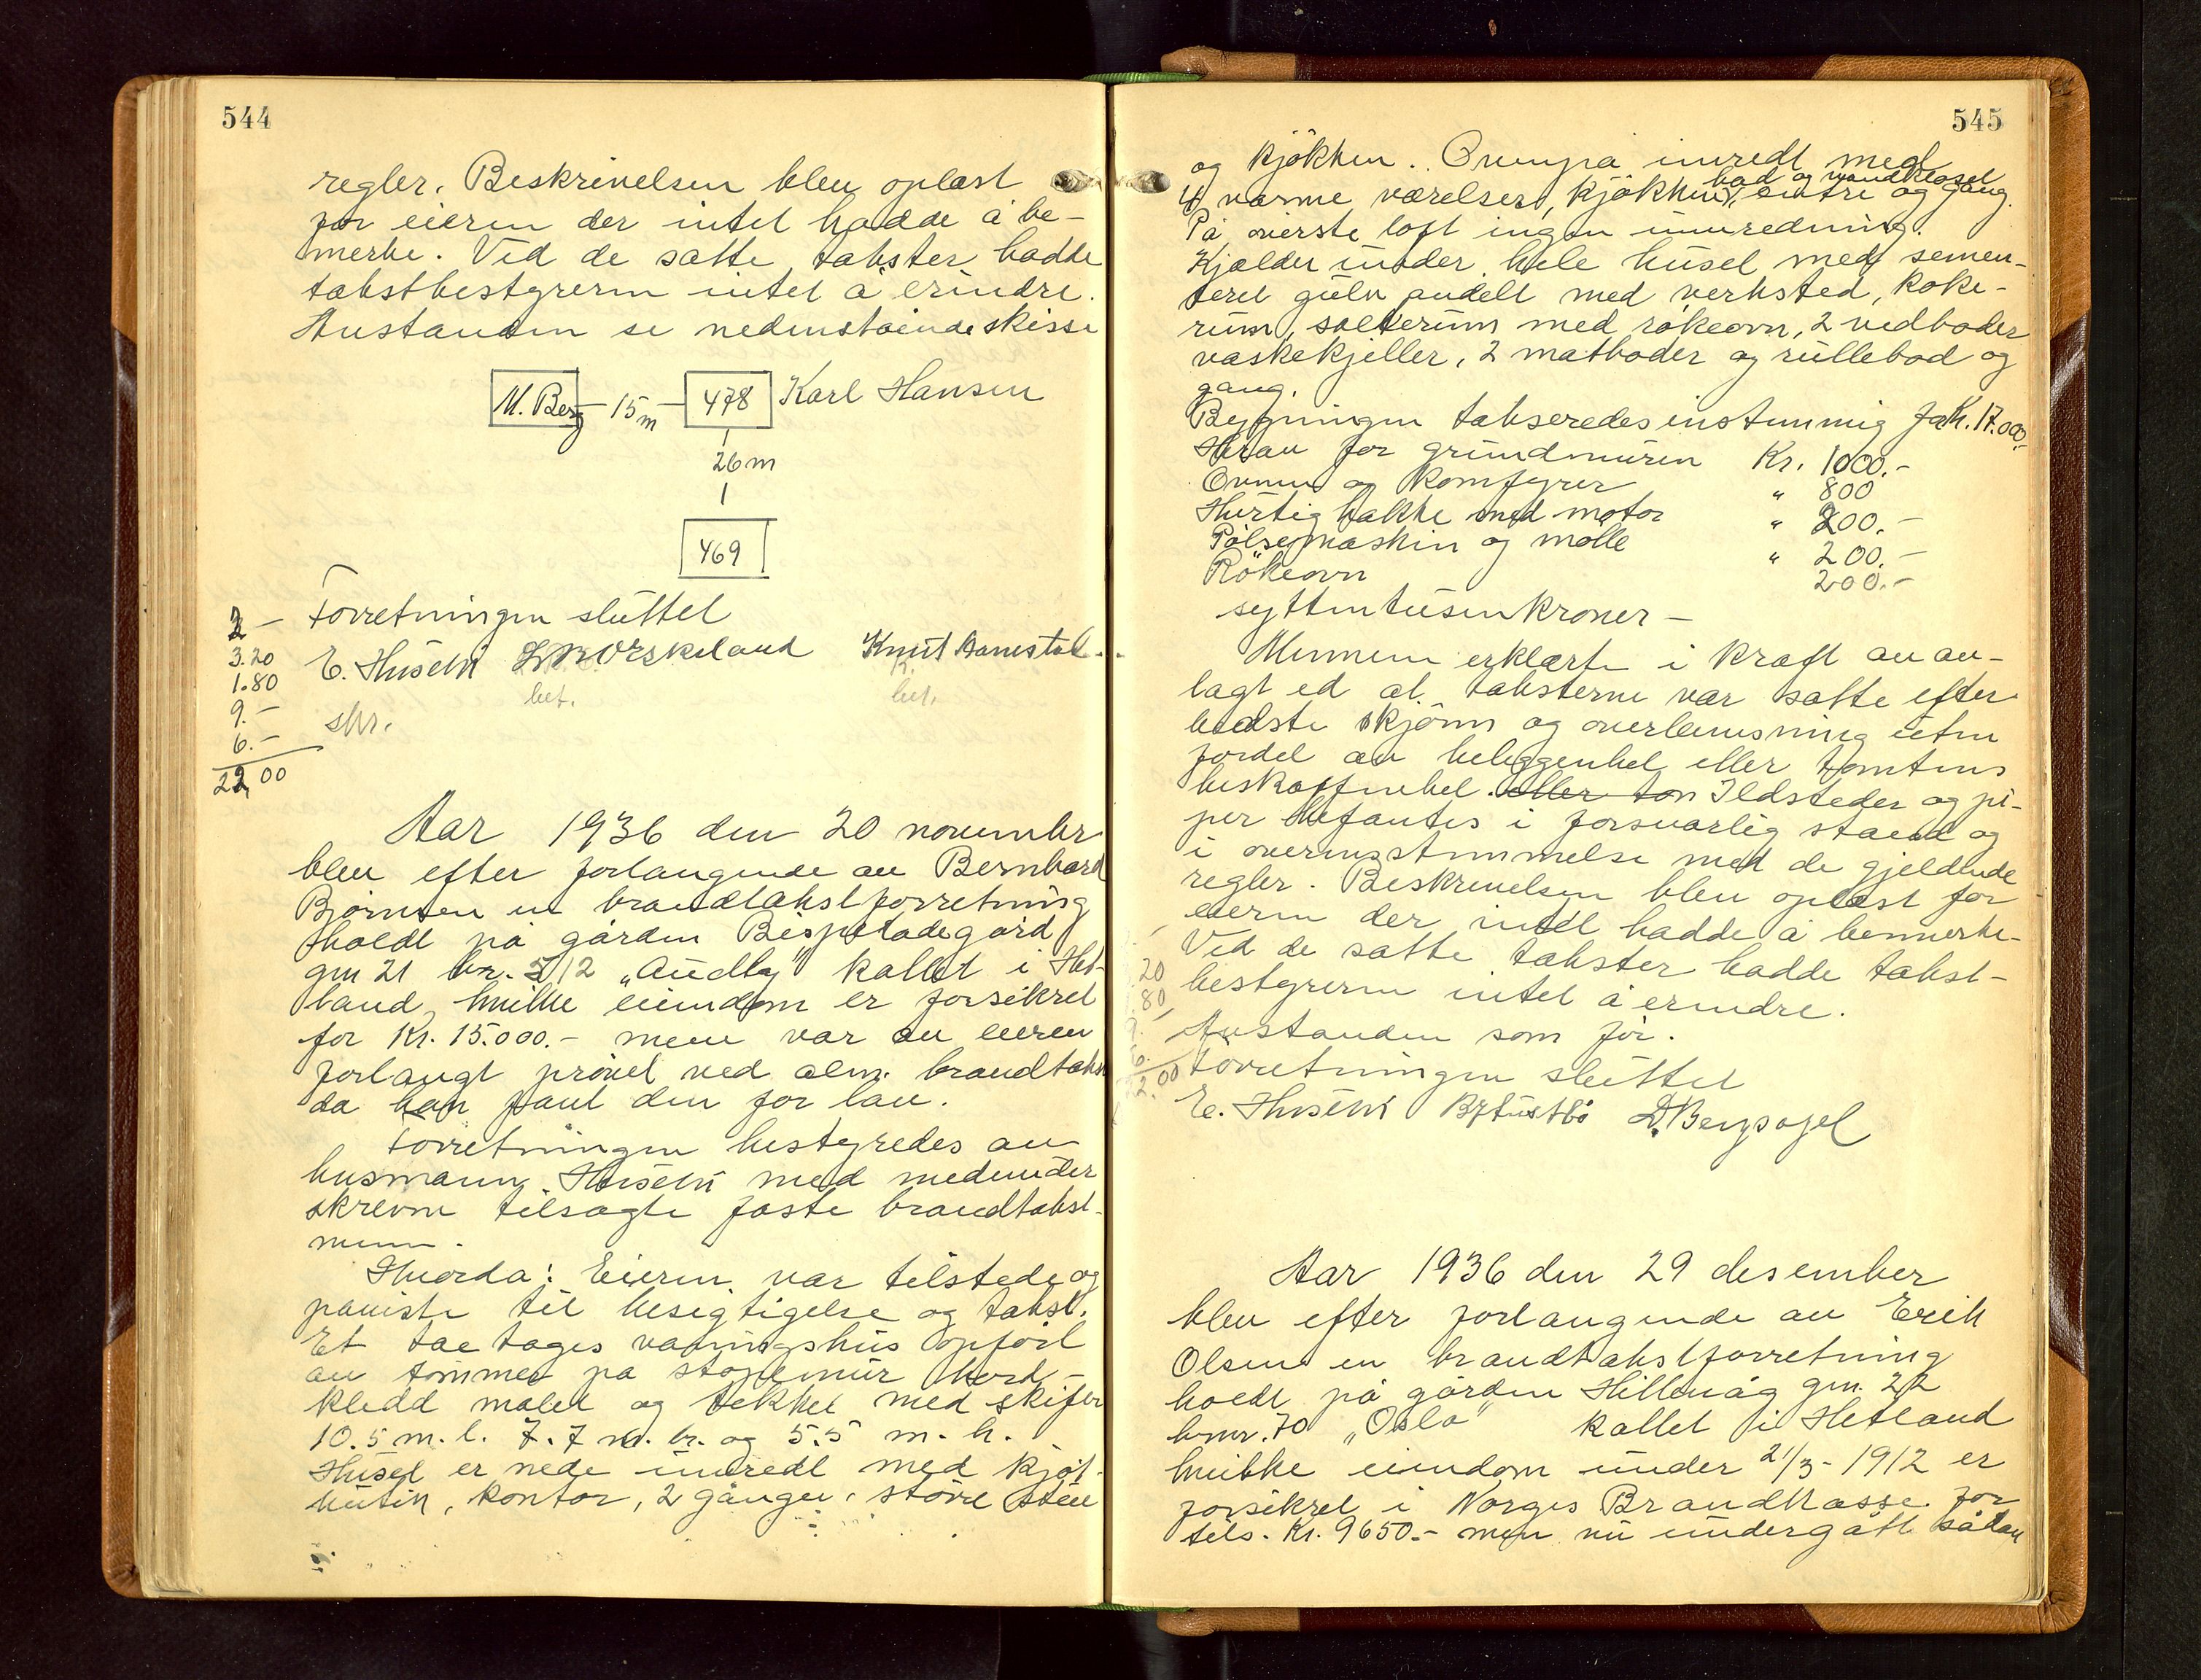 544
regler. Beskrivelsen blev oplæst
for eieren der intet hadde å be-
merke. Ved de satte takster hadde
takstbestyreren intet å erindre.
Avstanden se nedenstående skisse
M. Berg - 15 m - 478 Karl Hansen
26 m
469
2 - Forretningen sluttet
3.20 E. Husebø Erskeland Knut
1.80 bet. bet.
9.- skr.
6.-
22,00
Aar 1936 den 20 november
blev efter forlangende av Bernhard
Bjørnsen en brandtakstforretning
holdt på gården Bispeladegård
gn 21 br. 512 „Audby" kallet i Het-
land, hvilke eiendom er forsikret
for Kr. 15.000.- men var av eieren
forlangt prøvet ved alm. brandtakst
da han fant den for lav.
Forretningen bestyredes av
lensmann Husebø med medunder
skrevne tilsagte faste brandtakst-
menn.
Hvorda: Eieren var tilstede og
påviste til besigtigelse og takst.
Et toe tages våningshus opført
av tømmer på støpemur bord-
kledd malet og tekket med skifer
10.5 m. l. 7.7 m. br. og 5.5 m. h.
Huset er nede inredt med kjøt-
butik, kontor, 2 gånger, større stue
545
og kjøkken. Ovenpå inredt med
bad og vandklosel
4 varme værelser, kjøkken, entre og gang.
På øverste loft ingen innredning.
Kjælder under hele huset med semen-
teret gulv avdelt med verksted, koke-
rum, salterum med røkeovn, 2 vedboder
vaskekjeller, 2 matboder og rullebod og
gang.
Bygningen takseredes enstemmig for Kr. 17.000.-
Herav for grundmuren Kr. 1000.-
Ovner og komfyrer " 800
Hurtighakke med motor " 200.-
Pølsemaskin og mølle " 200.-
Røkeovn 200.-
syttentusenkroner -
Mennene erklærte i kraft av av-
lagt ed at taksterne var satte efter
bedste skjønn og overbevisning uten
fordel av beliggenhet eller tomtens
beskaffenhet. eller tom Ildsteder og pi-
per befantes i forsvarlig stand og
i overensstemmelse med de gjeldende
regler. Beskrivelsen blev oplæst for
eieren der intet hadde å bemerke.
Ved de satte takster hadde takst-
20 bestyreren intet å erindre.
80 Avstanden som før.
2.00 Forretningen sluttet
E. Husebø B. Tustbø D. Bergsagel
Aar 1936 den 29 desember
blev efter forlangende av Erik
Olsen en brandtakstforretning
holdt på gården Hillevåg gn. 22
bnr. 70 „Oslo" kallet i Hetland
hvilke eiendom under 21/3 - 1912 er
forsikret i Norges Brandkasse for
tils. Kr. 9650.- men nu undergått sådan